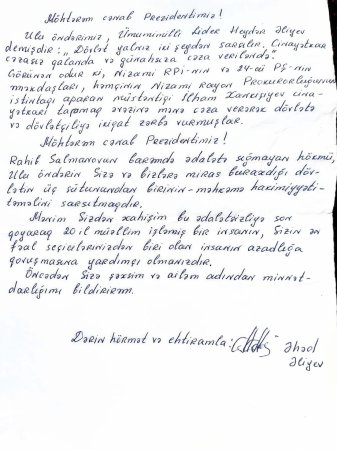 Möhtərəm cənab Prezidentimiz!
Ulu öndərimiz, Ümummilli Lider Heydər Əliyev
demişdir: "Dövlət yalnız iki şeydən sarsılır. Cinayətkar
cəzasız qalanda və günahsıza cəza veriləndə."
Görünən odur ki, Nizami RPİ-nin və 24-cü PŞ-nin
məkdaşları, həmçinin Nizami Rayon Prokurorluğunun
istintaqı aparan müstəntiqi İlham cina-
yətkarı tapmaq əvəzinə mənə cəza verərək dövlətə
və dövlətçiliyə ikiqat zərbə vurmuşlar.
Möhtərəm cənab Prezidentimiz!
Rahib Salmanovun barəmdə ədalətə sığmayan hökmü,
Ulu öndərin Sizə və bizlərə miras buraxdığı döv-
lətin üç sütunundan birinin-məhkəmə hakimiyyəti-
təməlini sarsıtmaqdır.
Mənim Sizdən xahişim bu ədalətsizliyə son
qoyaraq 20 il müəllim işləmiş bir insanın, Sizin ən
fəal seçicilərinizdən biri olan insanın azadlığa
qovuşmasına yardımçı olmanızdır.
Öncədən Sizə şəxsim və ailəm adından minnət-
darlığımı bildirirəm.
Dərin hörmət və ehtiramla: Əhəd
Əliyev